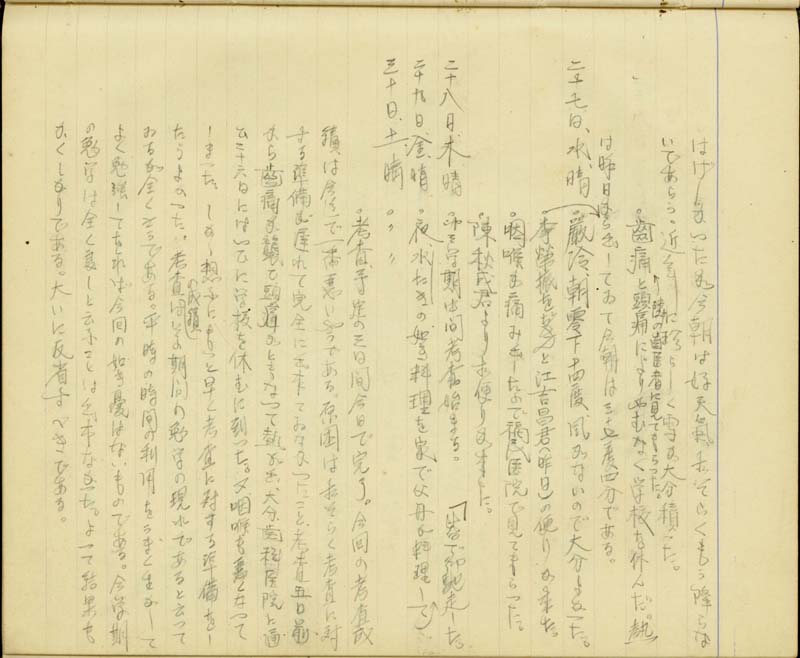 はげしかつたが今朝は好天氣おそらくもう降らな
いであらう。近年に珍らしく雪が大分積つた。
○齒痛と頭痛によりやむなく学校を休んだ。熱
隣の齒医者に見てもらつた。
は昨日から出てゐて今朝は三七度四分である。
二十七日、水、晴 ○嚴冷、朝零下十四度、風がないので大分よかつた。
と江吉昌君(昨日)の便りが來た。
○咽喉も痛み出したので医院で見てもらつた。
○陳秋氏君よりお便りが來た。
二十八日 木 晴 ○第三学期中間考査始まる。
二十九日、金、晴 ○夜、水たきの如き料理を家で父母が料理して
御馳走した。
三十日、土 晴 〃 〃
○考査、予定の三日間今日で完了。今回の考査成
績は今迄で一番悪いやうである原因はおそらく考査に対
する準備が遅れて完全に出来てゐなかつたこと、考査五日前
から齒痛が襲ひ頭痛がともなつて熱が出、大分齒科医院に通
ひ二十六日にはつひに学校を休むに到つた。又咽喉も悪くなつて
しまつた。しかし想ふにもつと早く考査に対する準備をし
たらよかつた。考査はその期間の勉学の現れであると云つて
の成績
おるが全くさうである。平時の時間の利用をうまく生かして
よく勉強しておれば今回の如き憂はないものである。今学期
の勉学は全く良しと云ふことは出来なかつた。よつて結果も
かくしかりである。大いに反省すべきである。